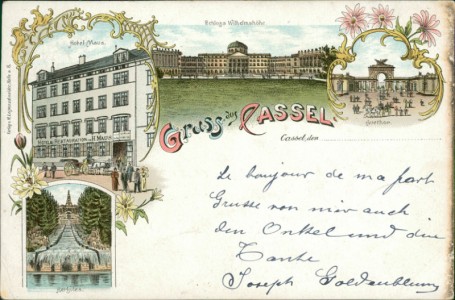 Hotel Maus.
Schloss Wilhelmshöhe
HOTEL RESTAURATION H. MAUS
Gruss aus CASSEL
Cassel, den
Le bonjour de ma part
Grusse von mir auch
den Onkel und die
Tante
Joseph Goldenblum